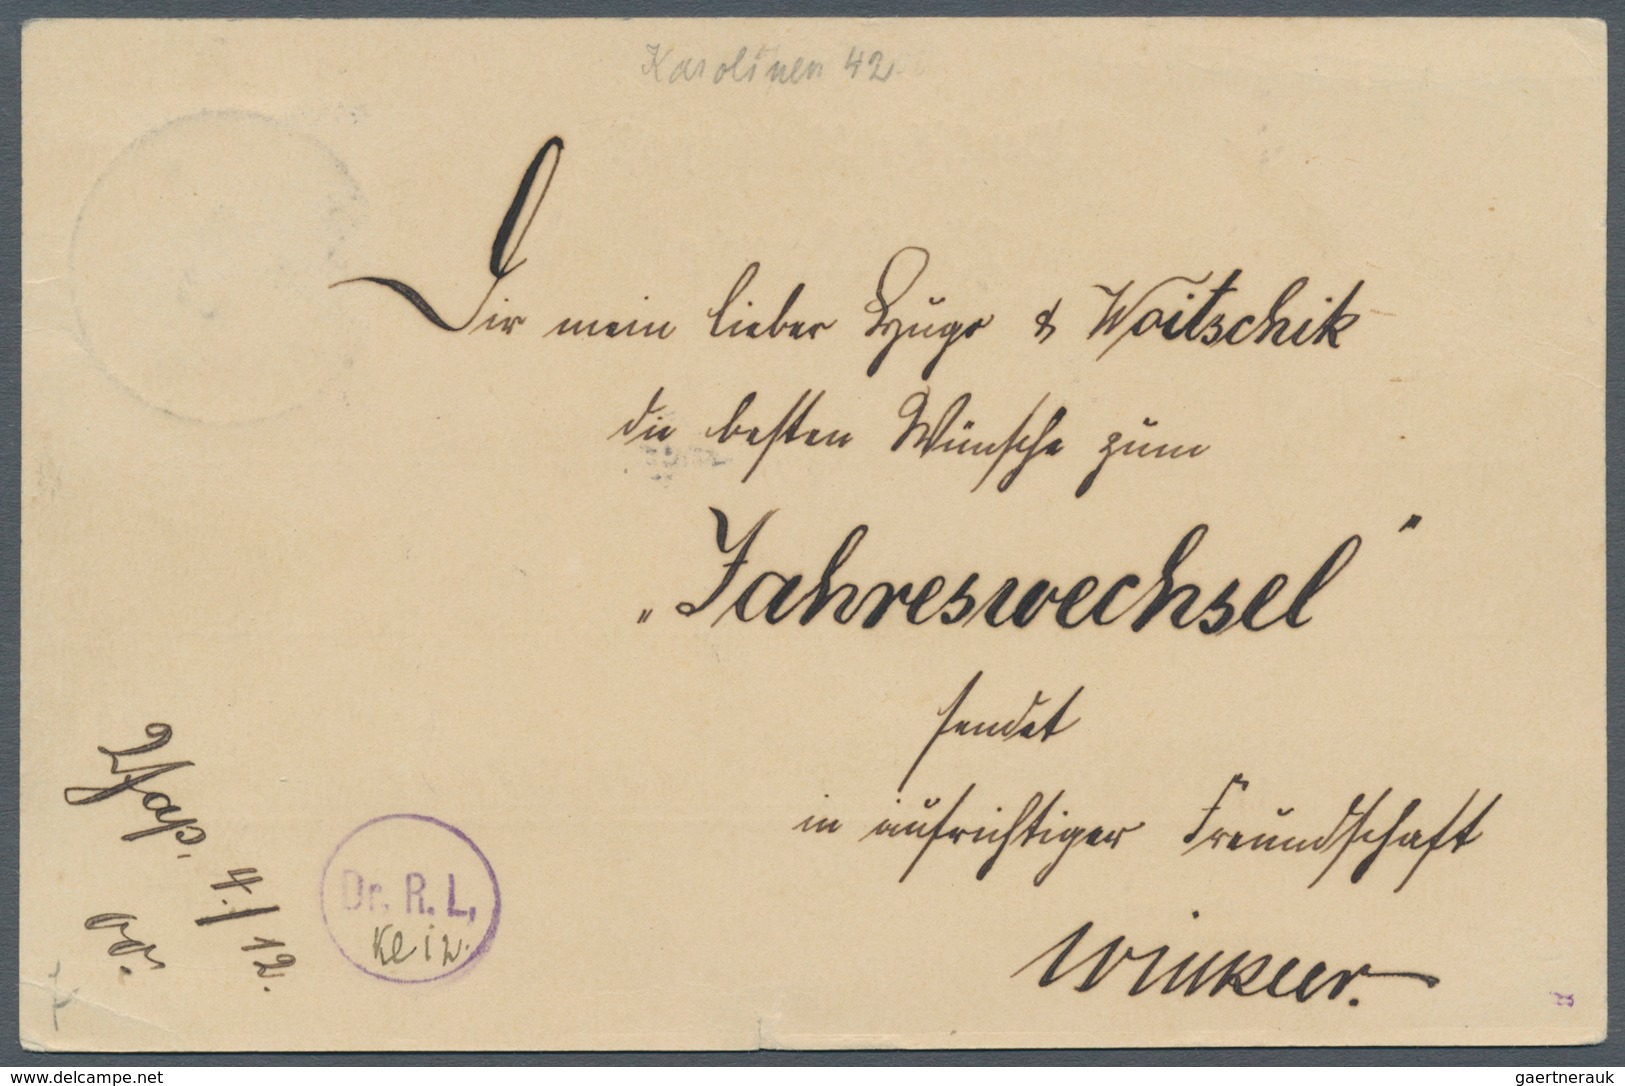 Karolinen 42
Dir mein lieber Hugo & Woitschik
die besten Wünsche zum
„Jahreswechsel"
sendet
in aufrichtiger Freundschaft
Winkler.
Yap. 4./12.
Dr. R. L,
gaertnerauk